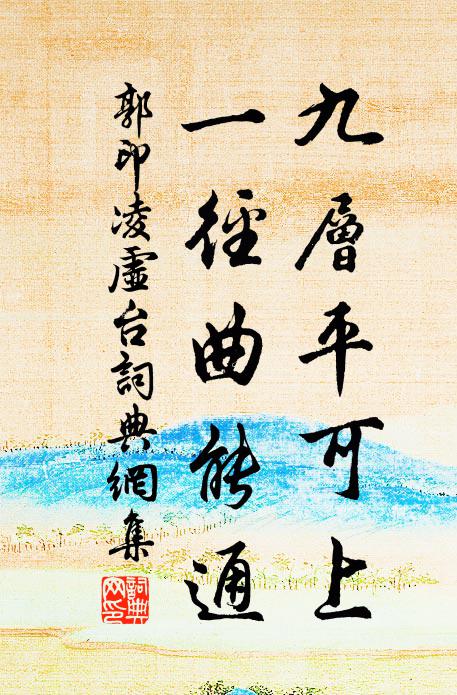 九層平可上
一徑曲能通
郭印凌虛台詞典網集
詞典
网印